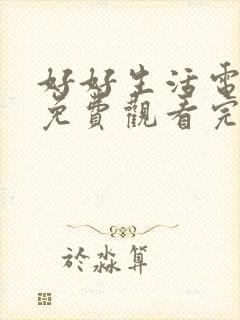 好好生活電
免費觀看完
於淼算